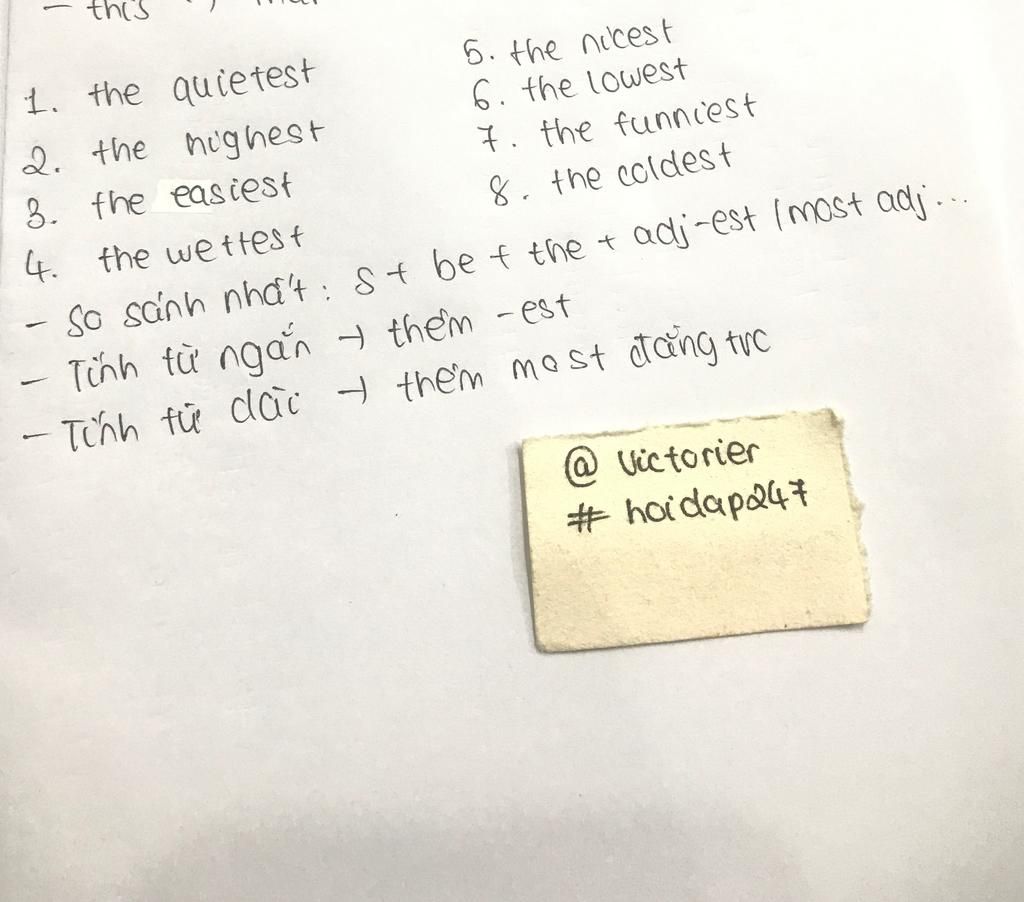 - this
1. the quietest
2. the highest
3. the easiest
4. the wettest
5. the nicest
6. the lowest
7. the funniest
8. the coldest
- So sánh nhất: S + be + the + adj-est / most adj...
- Tính từ ngắn → thêm -est
- Tính từ dài → thêm most đằng trc
@ victorier
# hoidap247